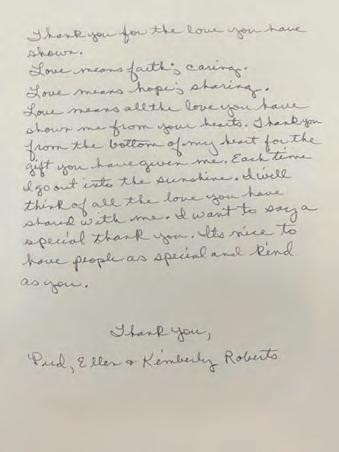 Thank you for the love you have
shown.
Love means faith & caring.
Love means hope & sharing.
Love means all the love you have
shown me from your hearts. Thank you
from the bottom of my heart for the
gift you have given me. Each time
I go out into the sunshine. I will
think of all the love you have
shared with me. I want to say a
special thank you. Its nice to
have people as special and kind
as you.
Thank you,
Ellen & Kimberly Roberts